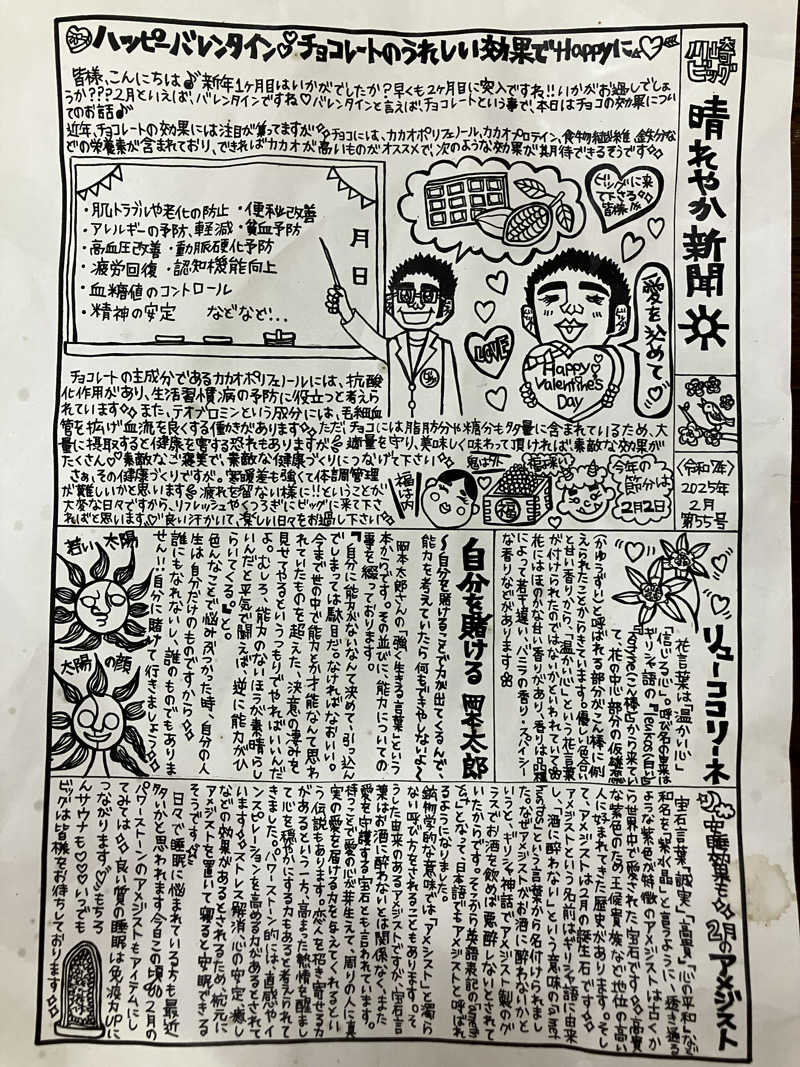 ハッピーバレンタイン♡チョコレートのうれしい効果でHappyに
川崎ビッグ
晴れやか新聞
〈令和7年〉
2025年
2月
第55号
皆様、こんにちは♪新年1ヶ月目はいかがでしたか?早くも2ヶ月目に突入ですね!!いかがお過しでしょ
うか???2月といえば、バレンタインですね♡バレンタインと言えば、チョコレートという事で、本日はチョコの効果につい
てのお話♪
近年、チョコレートの効果には注目が集ってますが◇◇チョコには、カカオポリフェノール、カカオプロテイン、食物繊維、鉄分な
どの栄養素が含まれており、できればカカオが高いものがオススメで、次のような効果が期待できるそうです◇◇
・肌トラブルや老化の防止 ・便秘改善
・アレルギーの予防、軽減 ・貧血予防
・高血圧改善 ・動脈硬化予防
・疲労回復 ・認知機能向上
・血糖値のコントロール
・精神の安定 などなど…
月
日
ビッグに来
て下さる
皆様
愛を込めて♡
LOVE
Happy
Valentine's
Day
チョコレートの主成分であるカカオポリフェノールには、抗酸
化作用があり、生活習慣病の予防に役立つと考えら
れています◇◇また、テオブロミンという成分には、毛細血
管を拡げ血流を良くする働きがあります◇◇ただ、チョコには脂肪分や糖分も多量に含まれているため、大
量に摂取すると健康を害する恐れもありますが適量を守り、美味しく味わって頂ければ、素敵な効果が
たくさん♡素敵なご褒美で、素敵な健康づくりにつなげて下さい◇◇
さぁ、その健康づくりですが。寒暖差も強くて体調管理
が難しいかと思います疲れを溜ない様に!!ということが
大変な日々ですから、リフレッシュやくつろぎにビッグに来て下さ
ればと思います♡良い汗かいて、楽しい日々をお過し下さい◇◇
福は内
鬼は外
福
福来い
今年の
節分は
2月2日
リューココリーネ
花言葉は「温かい心」
「信じる心」。呼び名の由来は
ギリシャ語の『leukos(白い)
て、花の中心部分の仮雄蕊
(かゆうずい)と呼ばれる部分がこん棒に例
えられたことからきています。優しい色合い
と甘い香りから、「温かい心」という花言葉
が付けられたのではないかといわれています
花にはほのかな甘い香りがあり、香りは品種
によって若干違い、バニラの香り・スパイシー
な香りなどがあります
自分を賭ける 岡本太郎
〜自分を賭けることで力が出てくるんで、
能力を考えていたら何もできやしないよ〜
岡本太郎さんの「強く生きる言葉」という
本からです。その並びに、能力についての
事を綴っております。
『自分に能力がないなんて決めて、引っ込ん
でしまっては駄目だ。なければなおいい。
今まで世の中で能力とか才能なんて思わ
れていたものを超えた、決意の凄みを
見せてやるというつもりでやればいいんだ
よ。むしろ、能力のないほうが素晴らし
いんだと平気で闘えば、逆に能力がひ
らいてくる。』と。
色んなことで悩みぶつかった時、自分の人
生は自分だけのものですから◇◇
誰にもなれないし、誰のものでもありま
せん!!自分に賭けて行きましょう◇◇
若い太陽
太陽の顔
安眠効果も◇◇2月のアメジスト
宝石言葉「誠実」「高貴」「心の平和」など
和名を“紫水晶”と言うように、透き通る
ような紫色が特徴のアメジストは古くか
ら世界中で愛された宝石です◇◇高貴
な紫色のため王侯貴族など地位の高い
人に好まれてきた歴史があります。そし
て、アメジストは2月の誕生石です◇◇
アメジストという名前はギリシャ語に由来
し、「酒に酔わない」という意味の
という言葉から名付けられまし
た。なぜアメジストがお酒に酔わないかと
いうと、ギリシャ神話でアメジスト製のグ
ラスでお酒を飲めば悪酔しないとされて
いたからです。そこから英語表記の
となって、日本語でもアメジストと呼ばれ
るようになりました。
鉱物学的な意味では「アメシスト」と濁ら
ない呼び方をされることもあります。そ
うした由来のあるアメジストですが、宝石言
葉はお酒に酔わないとは関係なく、また
愛を守護する宝石とも言われています。
持つことで愛の心が芽生えて、周りの人に真
実の愛を届ける力を与えてくれるとい
う伝説もあります。恋人を招き寄せる力
があるという一方、高まった熱情を醒まし
て心を穏やかにする力もあると考えられて
きました。パワーストーン的には、直感やイ
ンスピレーションを高める力があるとされて
います◇◇ストレス解消、心の安定、癒し
などの効果があるとされるため、枕元に
アメジストを置いて寝ると安眠できる
そうです◇◇
日々で睡眠に悩まれている方も最近
多いかと思われます今日この頃。2月の
パワーストーンのアメジストもアイテムにし
てみては◇◇良い質の睡眠は免疫力UPに
つながります♡もちろ
んサウナも♡♡いつでも
ビッグは皆様をお待ちしております◇◇